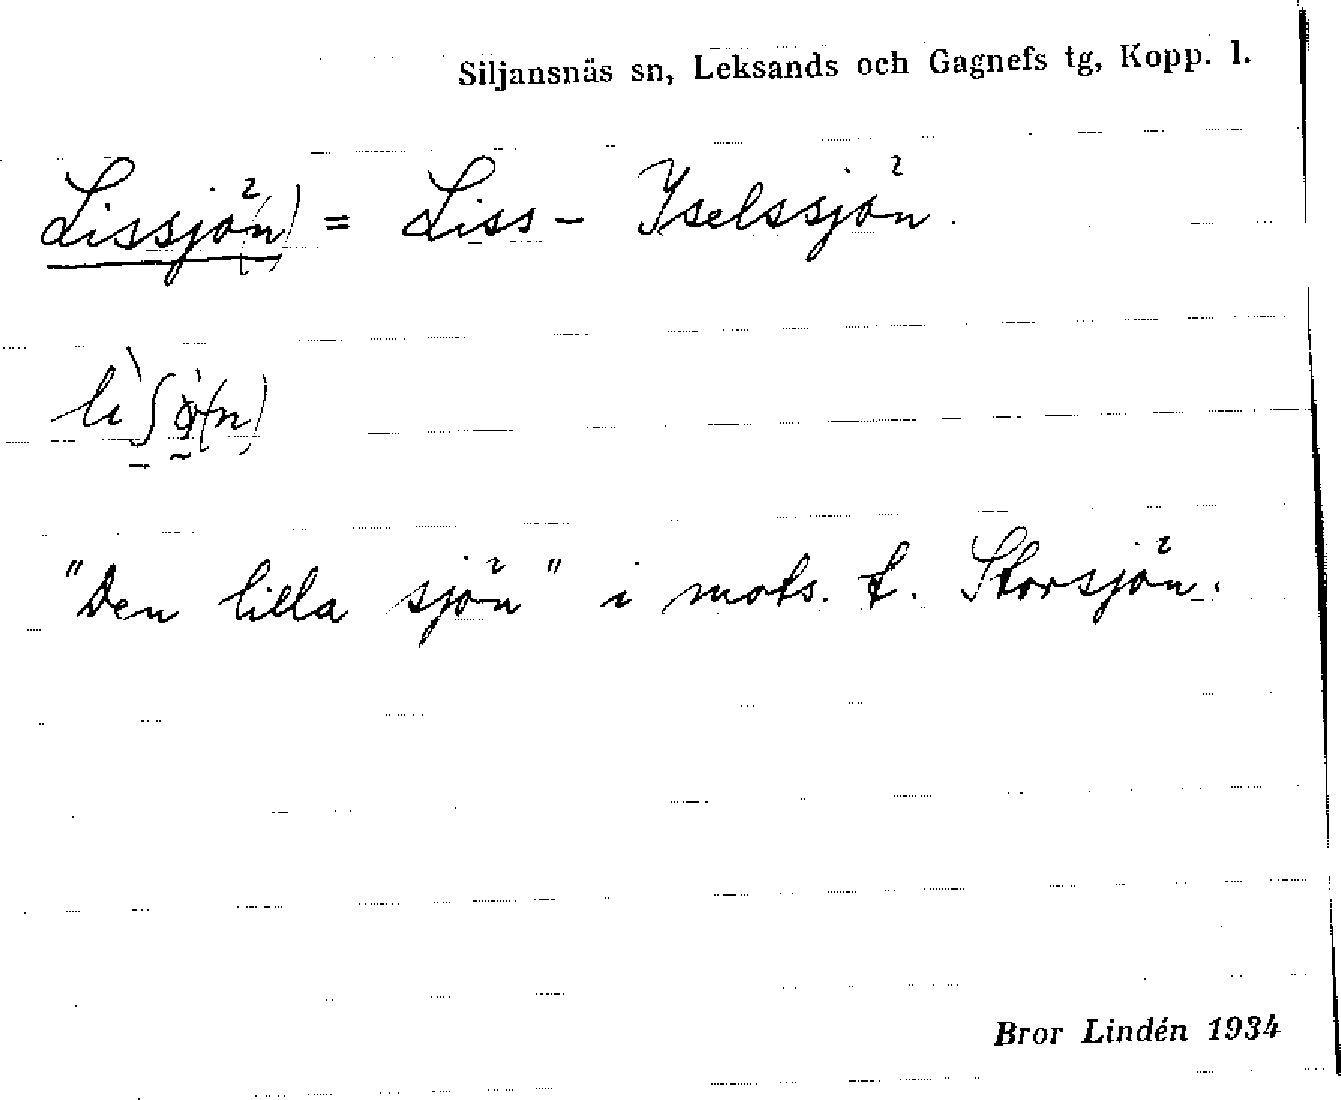 Siljansnäs sn, Leksands och Gagnefs tg, Kopp. l.
Lissjö(n) = Liss- Yselssjön.
"Den lilla sjön" i mots. t. Storsjön.
Bror Lindén 1934